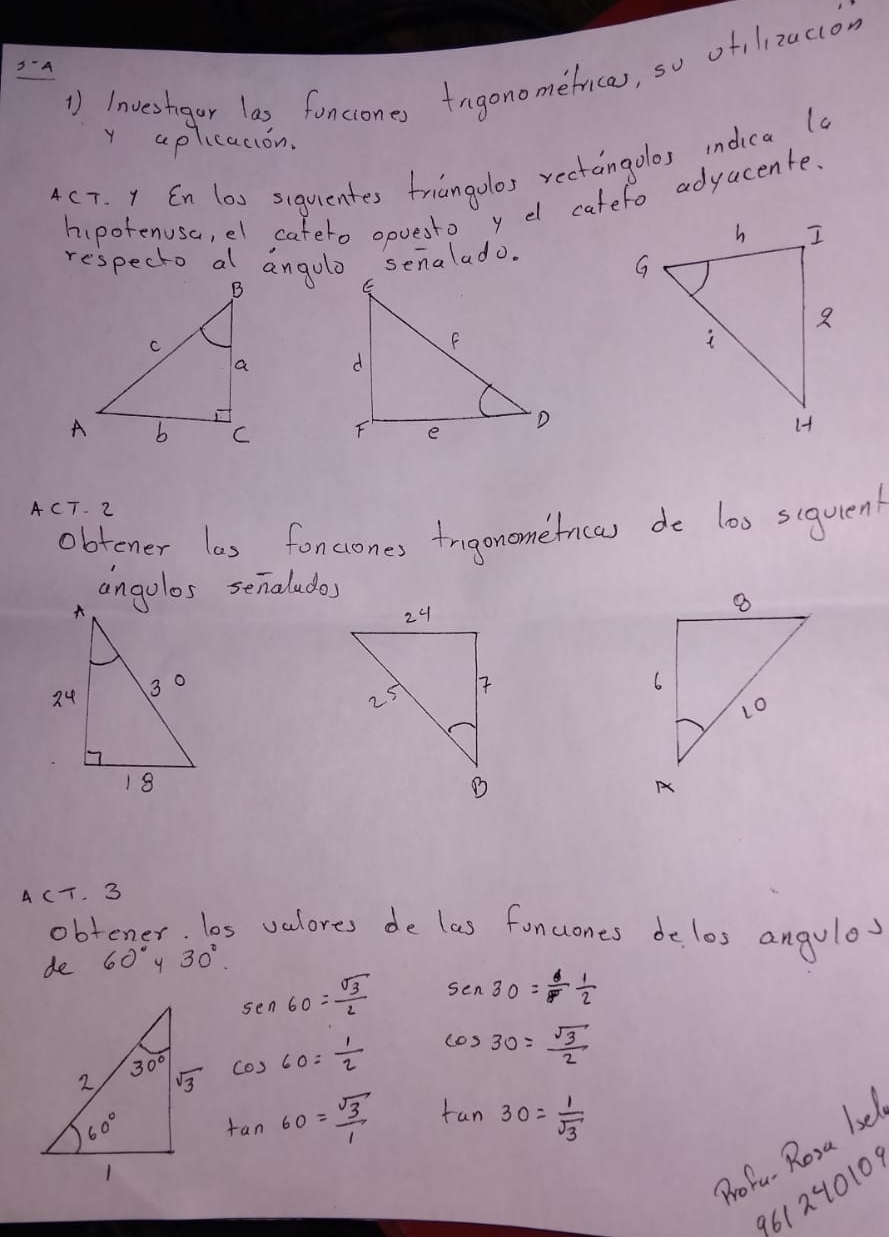 5-A
1) Investigar las funciones trigonométricas, su utilización
y aplicación.
ACT. 1 En los siguientes triángulos rectángulos indica la
hipotenusa, el cateto opuesto y el cateto adyacente.
respecto al ángulo señalado.
B
c
a
A
b
C
E
d
f
F
e
D
G
h
I
i
g
H
ACT. 2
Obtener las funciones trigonométricas de los siguient
ángulos señalados
A
24
30
18
24
25
7
B
8
6
10
A
ACT. 3
Obtener. los valores de las funciones de los angulos
de 60° y 30°.
2
30°
√3
60°
1
sen 60 = √3/2
sen 30 = 1/2
cos 60 = 1/2
cos 30 = √3/2
tan 60 = √3/1
tan 30 = 1/√3
Profa. Rosa Isel
961 240109